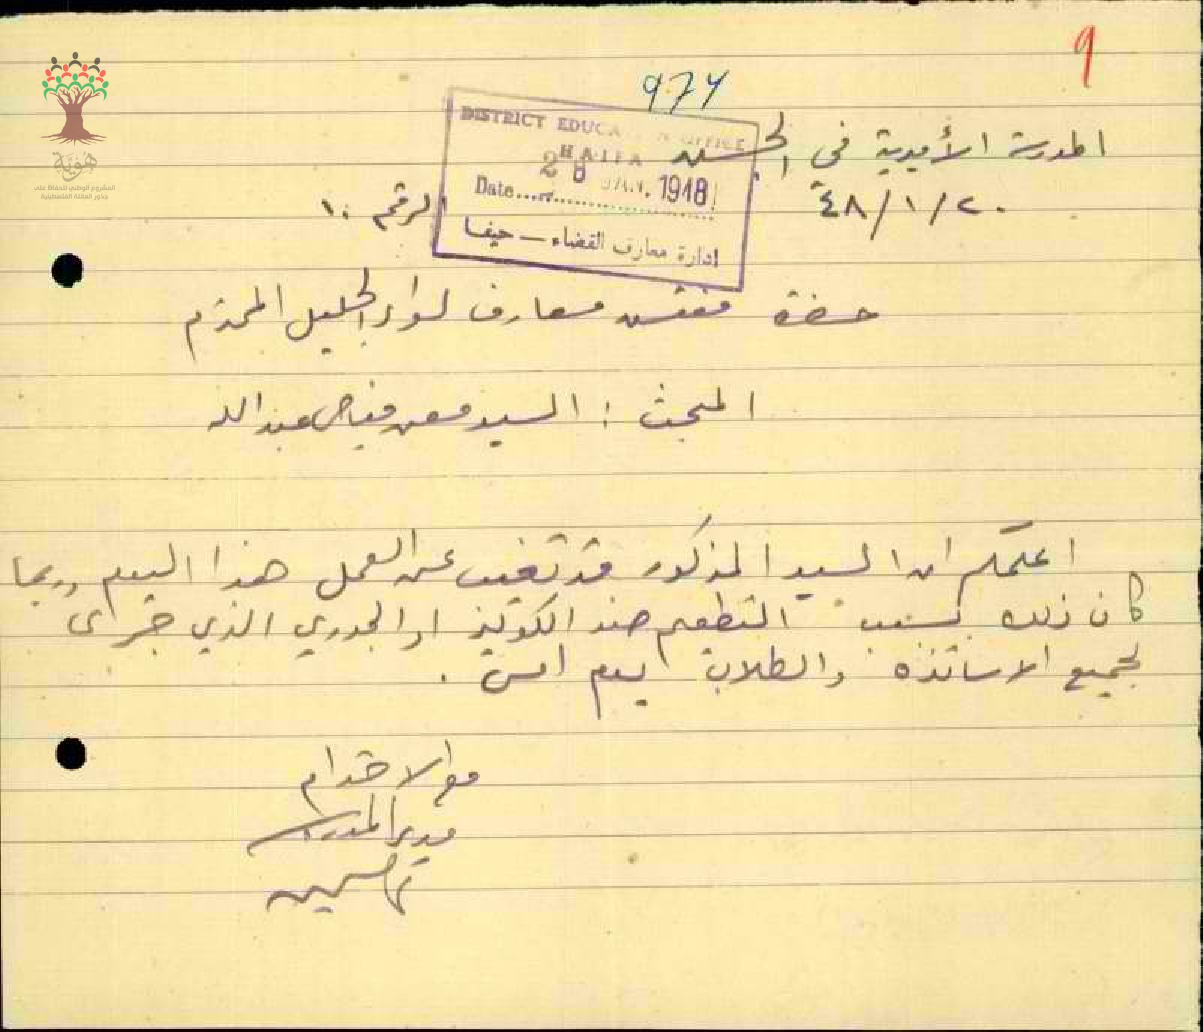 9
974
المدرسة الأميرية في الحسينية
DISTRICT EDUCATION OFFICE
HAIFA
28 JAN. 1948
Date
ادارة معارف القضاء — حيفا
٢٠/١/٤٨
الرقم ١٠
حضرة مفتش معارف لواء الجليل المحترم
المبحث : السيد معن فياض عبدالله
اعلمكم ان السيد المذكور قد تغيب عن العمل هذا اليوم وربما
كان ذلك بسبب التطعيم ضد الكوليرا او الجدري الذي جرى
لجميع الاساتذة والطلاب يوم امس .
مع الاحترام
مدير المدرسة
هوية
المشروع الوطني للحفاظ على
جذور العائلة الفلسطينية